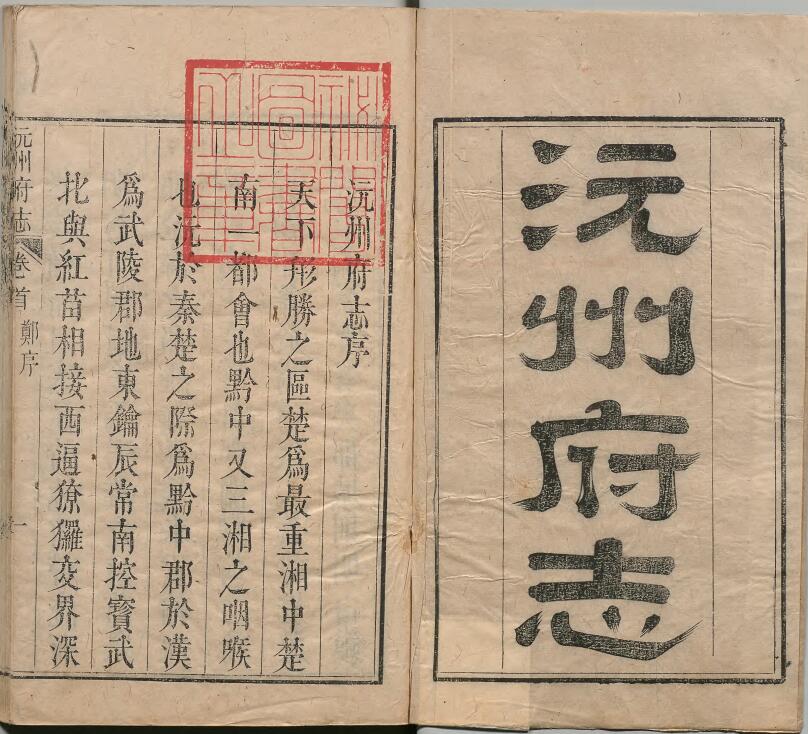 沅州府志
沅州府志序
天下形勝之區楚爲最重湘中楚
南一都會也黔中又三湘之咽喉
也沅於秦楚之際爲黔中郡於漢
爲武陵郡地東鑰辰常南控寶武
北與紅苗相接西逼獠玀交界深
沅州府志 卷首 鄭序 一